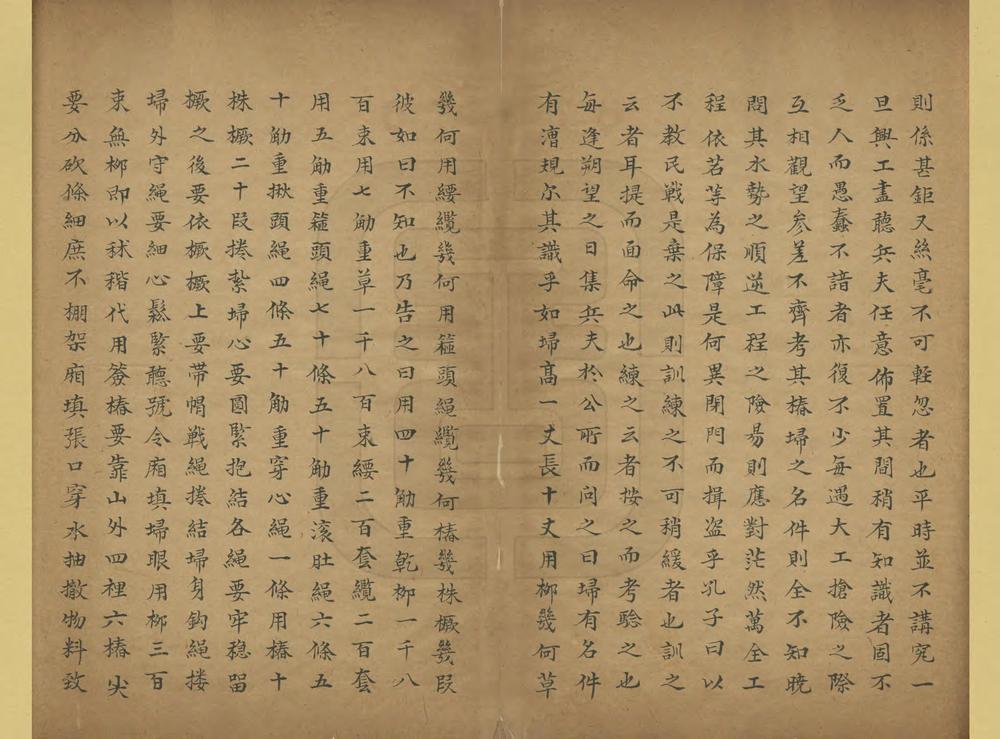 則係甚鉅又絲毫不可輕忽者也平時並不講究一
旦興工盡聽兵夫任意佈置其間稍有知識者固不
乏人而愚蠢不諳者亦復不少每遇大工搶險之際
互相觀望參差不齊考其樁埽之名件則全不知曉
問其水勢之順逆工程之險易則應對茫然萬全工
程依若等為保障是何異閉門而揖盜乎孔子曰以
不教民戰是棄之此則訓練之不可稍緩者也訓之
云者耳提而面命之也練之云者按之而考驗之也
每逢朔望之日集兵夫於公所而问之曰埽有名件
有漕規尔其識乎如埽高一丈長十丈用柳幾何草
幾何用纓纜幾何用箍頭絕纜幾何樁幾株橛幾叚
彼如曰不知也乃告之曰用四十觔重乾柳一千八
百束用七觔重草一千八百束纓二百套纜二百套
用五觔重箍頭繩七十條五十觔重滚肚繩六條五
十觔重揪頭繩四條五十觔重穿心繩一條用樁十
株橛二十叚捲紮埽心要圓緊抱結各繩要牢穩留
橛之後要依橛橛上要帶帽戦繩捲結埽身鈎繩搂
埽外守繩要細心鬆緊聽號令廂填埽眼用柳三百
束無柳即以秫稭代用簽樁要靠山外四裡六樁尖
要分砍條細庶不棚架廂填張口穿水抽撤物料致